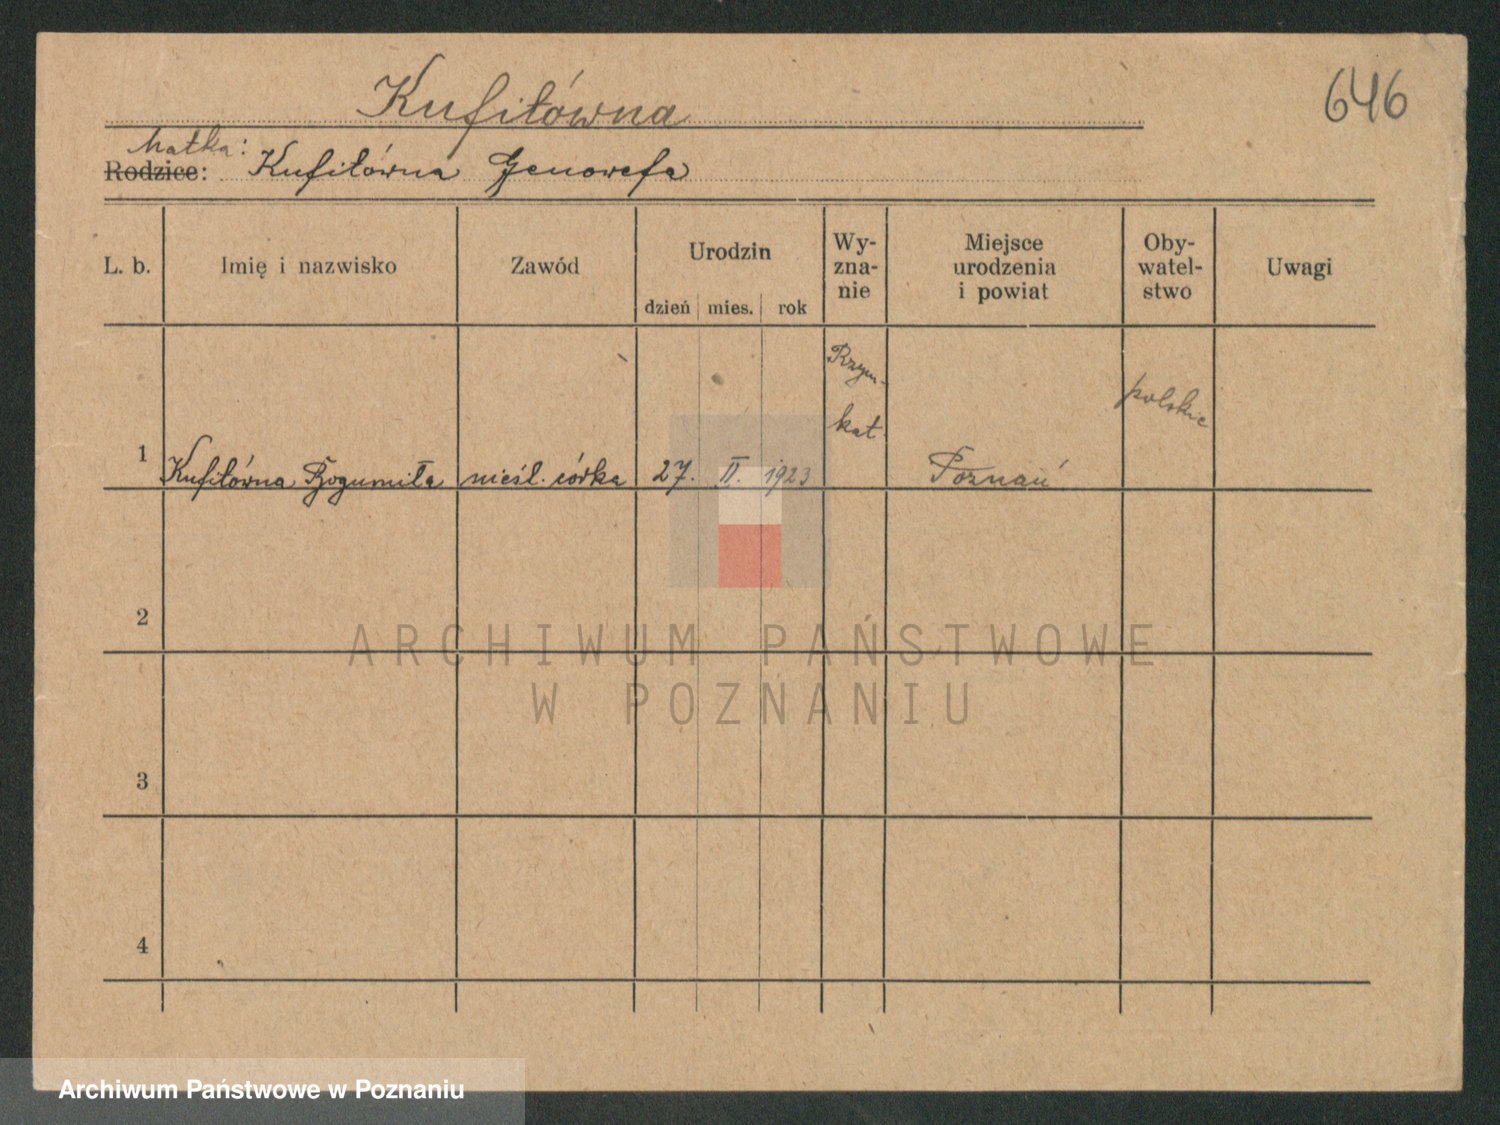 Kufitówna
646
Matka:
Rodzice: Kufitówna Genowefa
L. b.
Imię i nazwisko
Zawód
Urodzin
dzień mies. rok
Wy-
zna-
nie
Miejsce
urodzenia
i powiat
Oby-
watel-
stwo
Uwagi
1
Kufitówna Bogumiła
nieśl. córka
27. II. 1923
Rzym-
kat.
Poznań
polskie
2
3
4
ARCHIWUM PAŃSTWOWE
W POZNANIU
Archiwum Państwowe w Poznaniu